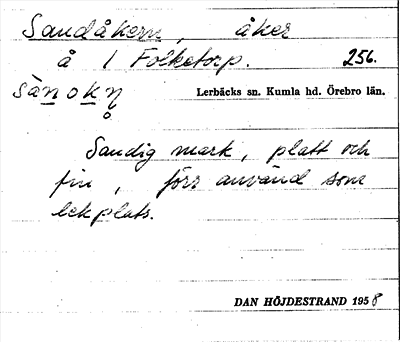 Sandåkern, åker
å 1 Folketorp. 256.
sànokn̥ Lerbäcks sn. Kumla hd. Örebro län.
Sandig mark, platt och
fin, förr använd som
lekplats.
DAN HÖJDESTRAND 1958